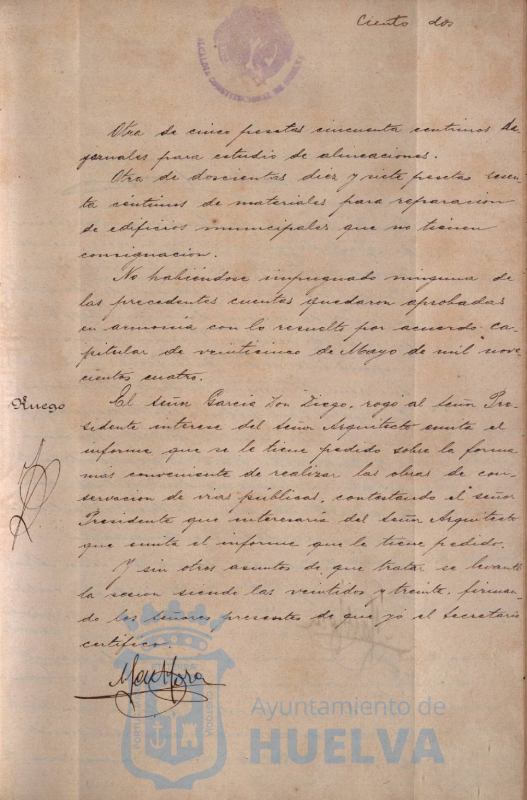 Ciento dos
ALCALDIA CONSTITUCIONAL DE HUELVA
Otra de cinco pesetas cincuenta centimos de
jornales para estudio de alineaciones.
Otra de doscientas diez y siete pesetas sesen-
ta céntimos de materiales para reparacion
de edificios municipales que no tienen
consignacion.
No habiéndose impugnado ninguna de
las precedentes cuentas quedaron aprobadas
en armonía con lo resuelto por acuerdo ca-
pitular de veinticinco de Mayo de mil nove-
cientos cuatro.
Ruego
El señor García Don Diego, rogó al señor Pre-
sidente interese del señor Arquitecto emita el
informe que se le tiene pedido sobre la forma
mas conveniente de realizar las obras de con-
servacion de vias públicas, contestando el señor
Presidente que interesaria del señor Arquitecto
que emita el informe que le tiene pedido.
Y sin otros asuntos de que tratar se levantó
la sesion siendo las veintidos y treinta, firman-
do los señores presentes de que yó el Secretario
certifico.
Ayuntamiento de
HUELVA